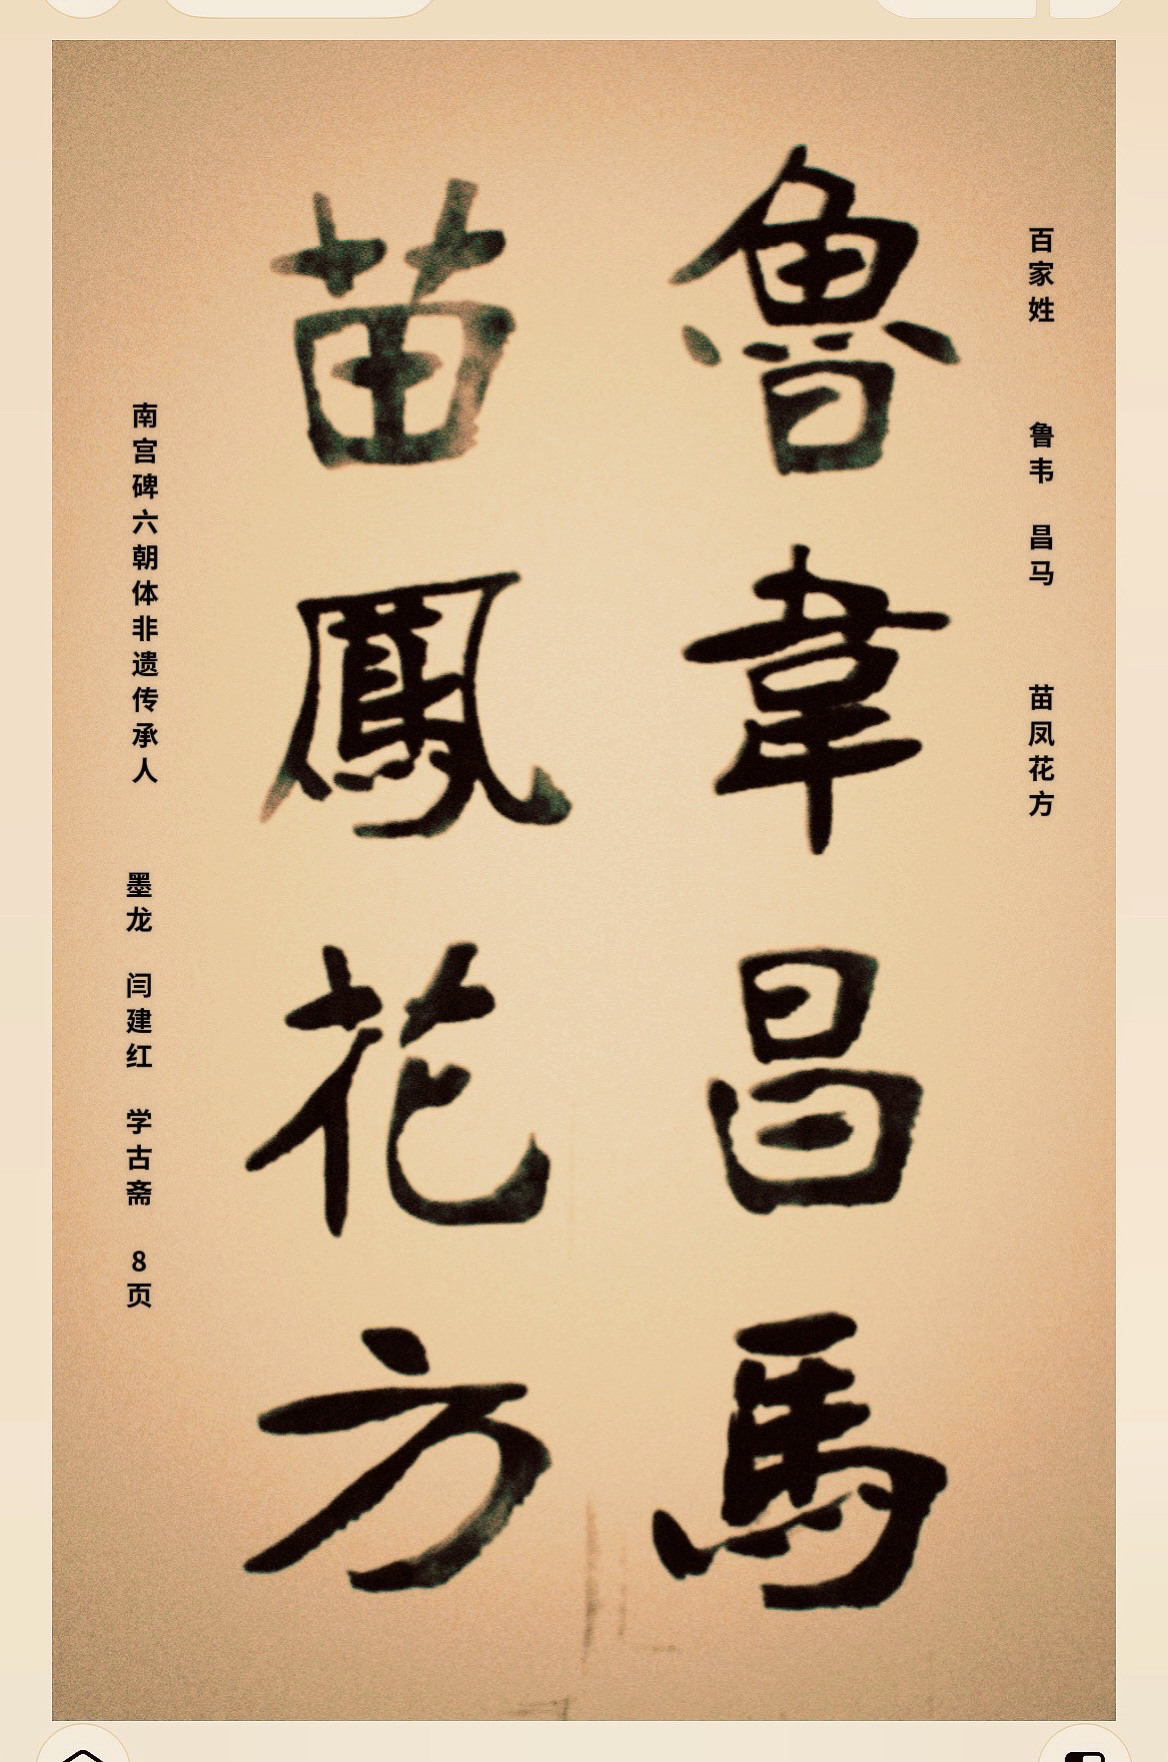 百家姓 鲁韦 昌马 苗凤花方
魯韋昌馬
苗鳳花方
南宫碑六朝体非遗传承人
墨龙 闫建红 学古斋 8页